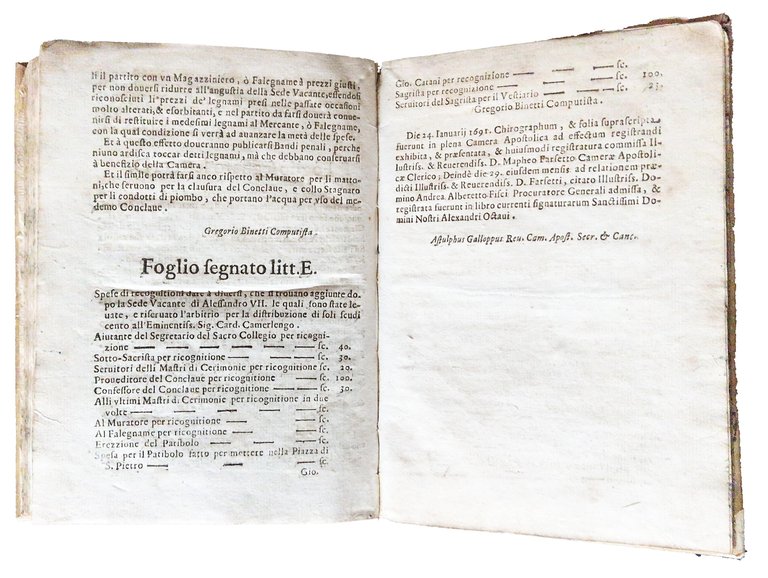 li il partito con vn Magazziniero, ò Falegname à prezzi giusti,
per non douersi ridurre all'angustia della Sede Vacante, essendosi
riconosciuti li prezzi de' legnami presi nelle passate occasioni
molto alterati, & esorbitanti, e nel partito da farsi douerà conue-
nirsi di restituire i medesimi legnami al Mercante, ò Falegname,
con la qual condizione si verrà ad auanzare la metà delle spese.
Et à quest'effetto doueranno publicarsi Bandi penali, perche
niuno ardisca toccar detti legnami, mà che debbano conseruarsi
à benefizio della Camera.
Et il simile potrà farsi anco rispetto al Muratore per li matto-
ni, che seruono per la clausura del Conclaue, e collo Stagnaro
per li condotti di piombo, che portano l'acqua per vso del me-
demo Conclaue.
Gregorio Binetti Computista.
Foglio segnato litt. E.
Spese di recognitioni date à diuersi, che si trouano aggiunte do-
po la Sede Vacante di Alessandro VII. le quali sono state le-
uate, e riseruato l'arbitrio per la distribuzione di soli scudi
cento all'Eminentiss. Sig. Card. Camerlengo.
Aiutante del Segretario del Sacro Collegio per ricogni-
zione — — — — — — sc. 40.
Sotto-Sacrista per ricognitione — — — sc. 30.
Seruitori delli Mastri di Cerimonie per ricognitione sc. 20.
Proueditore del Conclaue per ricognitione — — sc. 100.
Confessore del Conclaue per ricognitione — — sc. 30.
Alli vltimi Mastri di Cerimonie per ricognitione in due
volte — — — — — — sc.
Al Muratore per ricognitione — — — sc.
Al Falegname per ricognitione — — — sc.
Erezzione del Patibolo — — — — sc.
Spesa per il Patibolo fatto per mettere nella Piazza di
S. Pietro — — — — — sc.
Gio.
Gio. Catani per recognizione — — — sc. 100.
Sagrista per recognizione — — — — sc.
Seruitori del Sagrista per il Vestiario — — sc.
Gregorio Binetti Computista.
Die 24. Ianuarij 1691. Chirographum, & folia suprascripta
fuerunt in plena Camera Apostolica ad effectum registrandi
exhibita, & præsentata, & huiusmodi registratura commissa Il-
lustriss. & Reuerendiss. D. Mapheo Farsetto Cameræ Apostoli-
cæ Clerico; Deindè die 29. eiusdem mensis ad relationem præ-
dicti Illustriss. & Reuerendiss. D. Farsetti, citato Illustriss. Do-
mino Andrea Alberetto Fisci Procuratore Generali admissa, &
registrata fuerunt in libro currenti signaturarum Sanctissimi Do-
mini Nostri Alexandri Octaui.
Astulphus Galloppus Reu. Cam. Apost. Secr. & Canc.